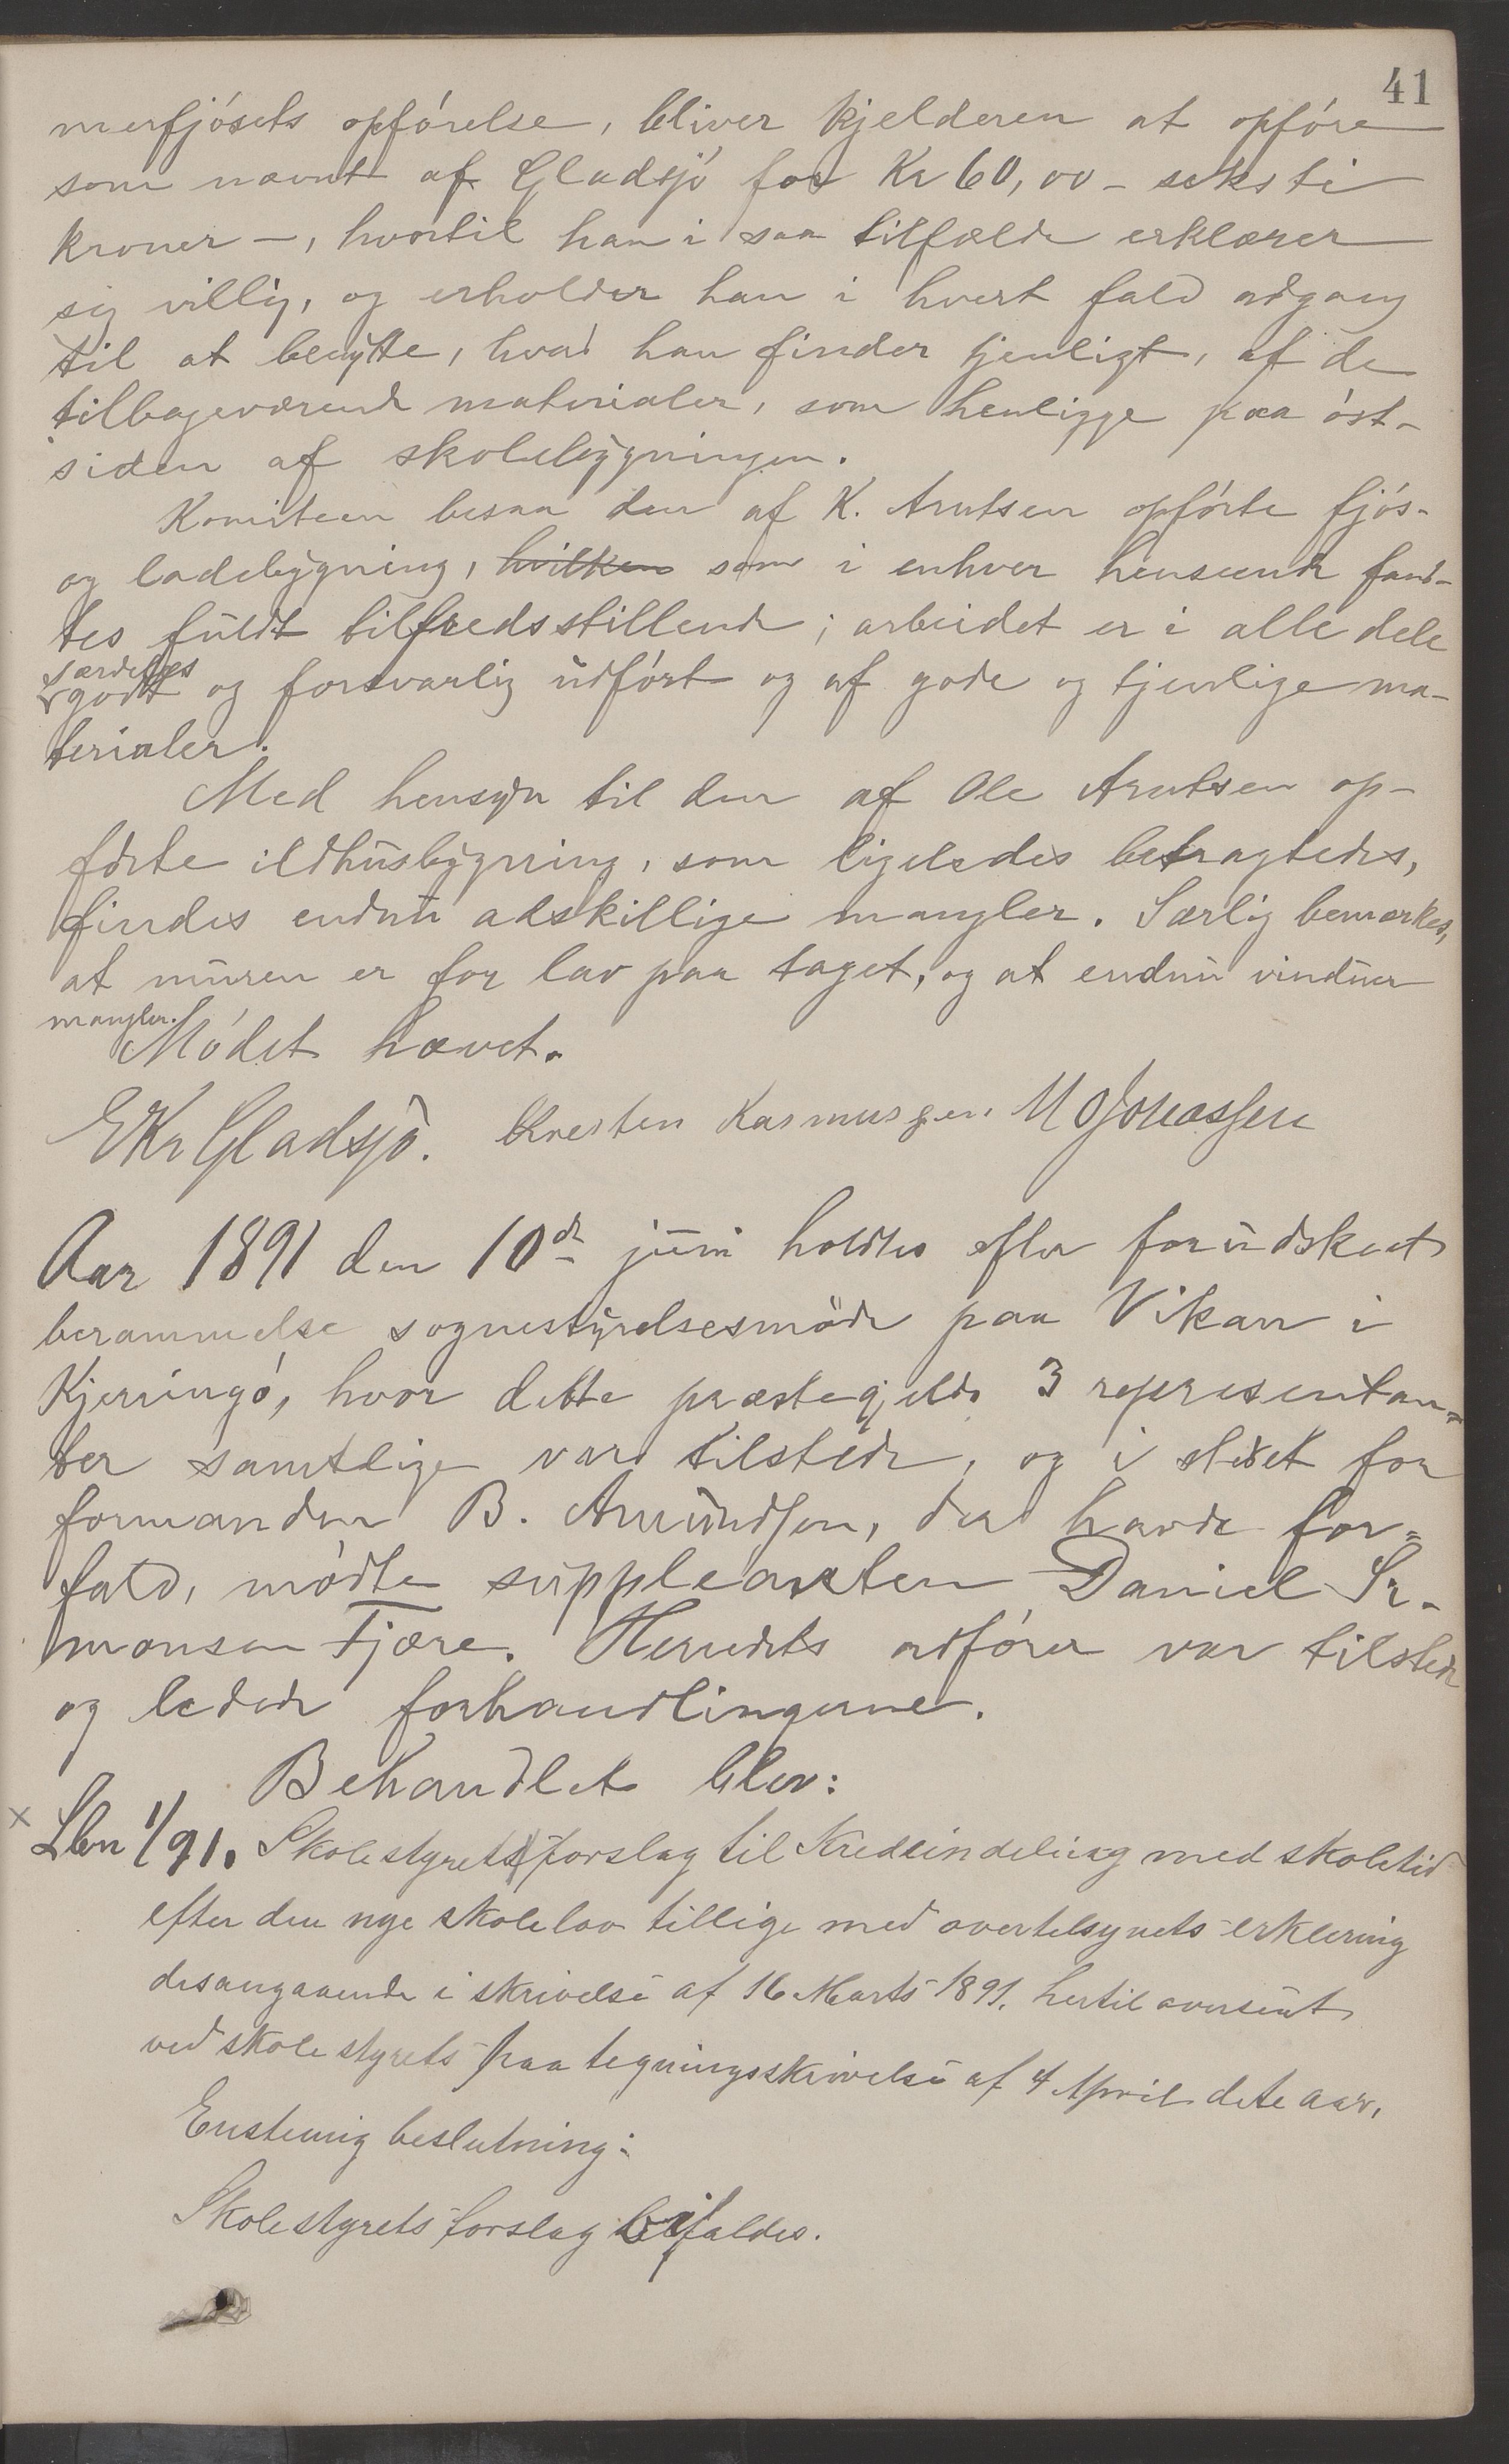 41
merfjósets opførelse, bliver kjelderen at opføre
som nævnt af Gladsjó for Kr 60,00 – seksti
kroner –, hvortil han i saa tilfælde erklærer
sig villig, og erholder han i hvert fald adgang
til at benytte, hvad han finder tjenligt, af de
tilbageværende materialer, som henligge paa óst-
siden af skolebygningen.
Komiteen besaa den af K. Arntsen opfórte fjós-
og ladebygning, hvilken som i enhver henseende fand-
tes fuldt tilfredsstillende; arbeidet er i alle dele
særdeles
godt og forsvarlig udfórt og af gode og tjenlige ma-
terialer.
Med hensyn til den af Ole Arntsen op-
fórte ildhusbygning, som ligeledes betragtedes,
findes endnu adskillige mangler. Særlig bemærkes,
at muren er for lav paa taget, og at endnu vinduer
mangler.
Módet hævet.
E Kr Gladsjó. Kresten Rasmussen. M O Jonassen
Aar 1891 den 10de juni holdtes efter forudskeet
berammelse sognestyrelsesmøde paa Vikan i
Kjerringó, hvor dette præstegjelds 3 representan=
ter samtlige var tilstede, og i stedet for
formanden B. Amundsen, der havde for=
fald, módte suppleanten Daniel Si-
monsen Fjære. Herredets ordfórer var tilstede
og ledede forhandlingerne.
Behandlet blev:
x Lbn 1/91. Skolestyrets forslag til Kredsindeling med skoletid
efter den nye skolelov tillige med overtilsynets erklering
desangaaende i skrivelse af 16 Marts 1891. hertil oversent
ved skolestyrets paategningsskrivelse af 4 April dete aar.
Enstemig beslutning:
Skolestyrets forslag bifaldes.